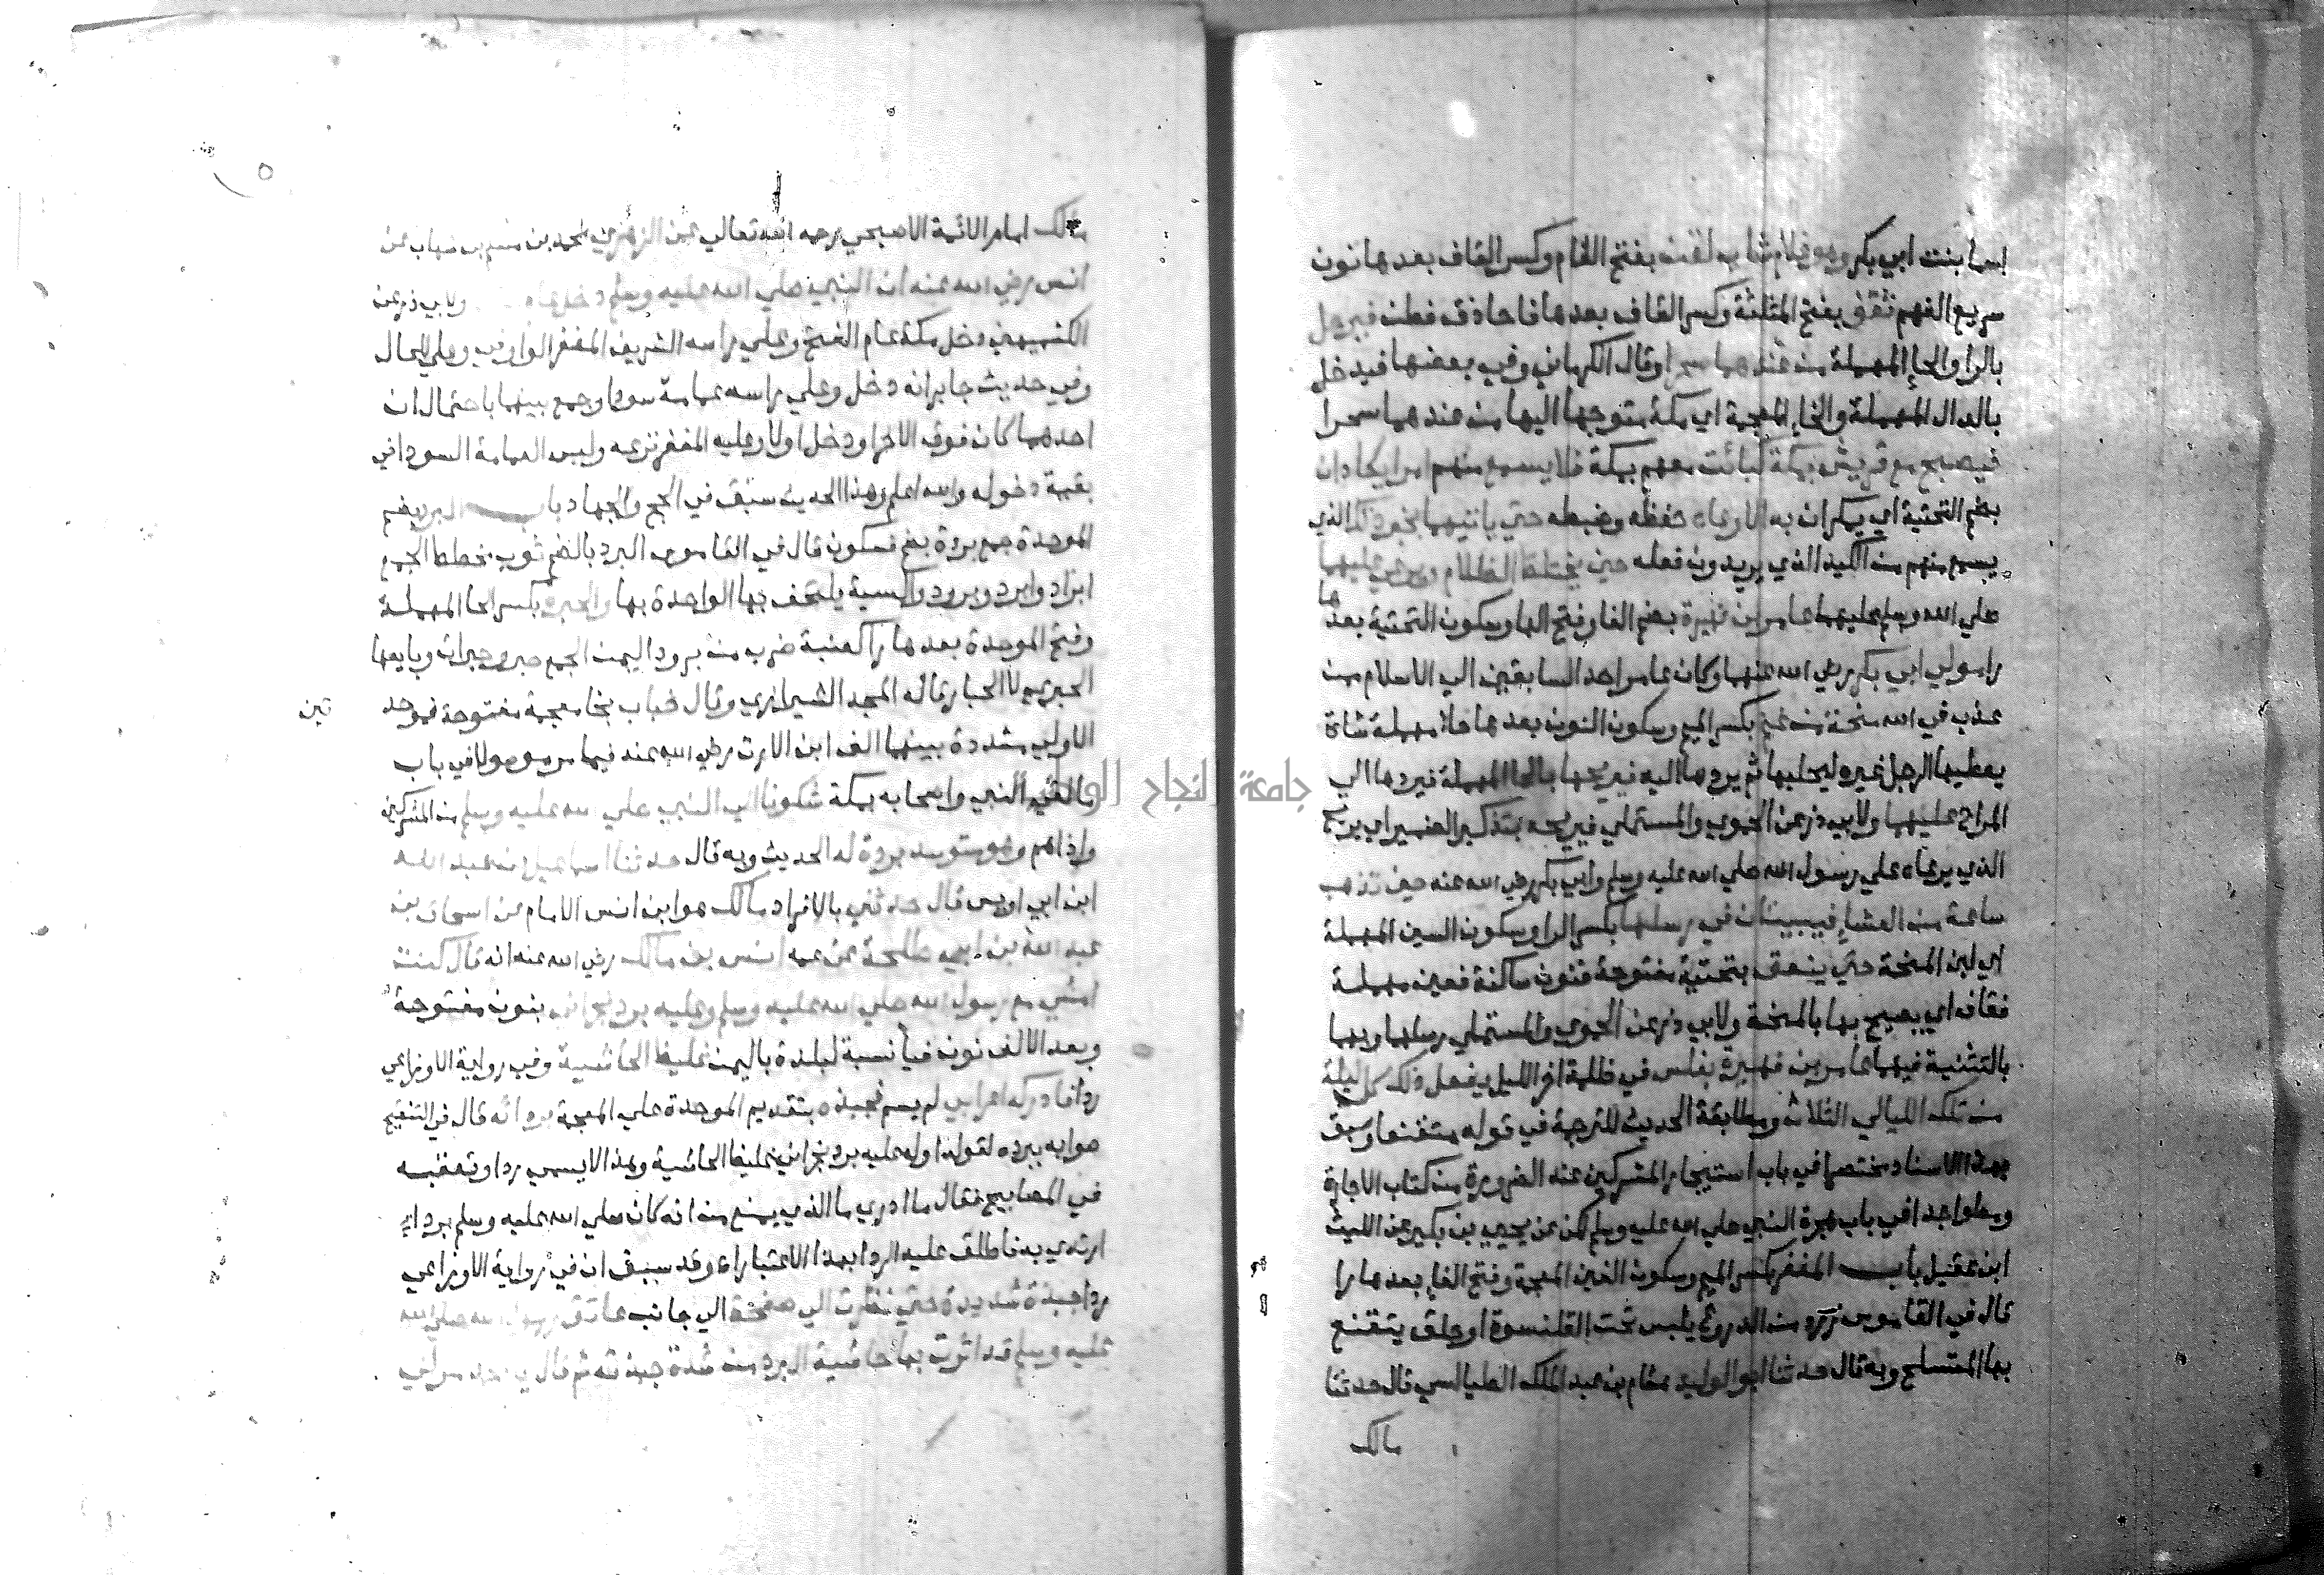 اسما بنت ابي بكر وهو غلام شاب لقن بفتح اللام وكسر القاف بعدها نون
سريع الفهم ثقف بفتح المثلثة وكسر القاف بعدها فا حاذق فطن فيرحل
بالرا والحا المهملة من عندهما سحرا وقال الكرماني وفي بعضها فيدخل
بالدال المهملة والخاء المعجمة اي مكة متوجها اليها من عندهما سحرا
فيصبح مع قريش بمكة كبائت معهم بمكة فلا يسمع منهم امرا يكادان
بضم التحتية اي يمكران به الا وعاه حفظه وضبطه حتي ياتيهما بخبر ذلك الذي
يسمع منهم من الكيد الذي يريدون فعله حين يختلط الظلام ويرعي عليهما
صلي الله وسلم عليهما عامر بن فهيرة بضم الفا وفتح الها وسكون التحتية بعدها
را مولي ابي بكر رضي الله عنهما وكان عامر احد السابقين الي الاسلام ممن
عذب في الله منحة من غنم بكسر الميم وسكون النون بعدها حاء مهملة شاة
يعطيها الرجل غيره ليحلبها ثم يردها اليه فيريحها بالحا المهملة فيردها الي
المراح عليهما ولابي ذر عن الحموي والمستملي فيريحه بتذكير الضمير اي يريح
الذي يرعاه علي رسول الله صلي الله عليه وسلم وابي بكر رضي الله عنه حين تذهب
ساعة من العشاء فيبيتان في رسلها بكسر الرا وسكون السين المهملة
اي لبن المنحة حتي ينعق بتحتية مفتوحة فنون ساكنة فعين مهملة
فقاف اي يصيح بها بالمنحة ولابي ذر عن الحموي والمستملي رسلهما وبهما
بالتثنية فيهما عامر بن فهيرة بغلس في ظلمة اخر الليل يفعل ذلك كل ليلة
من تلك الليالي الثلاث ومطابقة الحديث للترجمة في قوله متقنعا وسبق
بهذا الاسناد مختصرا في باب استيجار المشركين عند الضرورة من كتاب الاجارة
ومطولا جدا في باب هجرة النبي صلي الله عليه وسلم لكن عن يحيي بن بكير عن الليث
ابن عقيل باب المغفر بكسر الميم وسكون الغين المعجمة وفتح الفاء بعدها را
قال في القاموس زرد من الدروع يلبس تحت القلنسوة او حلق يتقنع
بها المتسلح وبه قال حدثنا ابو الوليد هشام بن عبد الملك الطيالسي قال حدثنا
مالك
مالك امام الائمة الاصبحي رحمه الله تعالي عن الزهري محمد بن مسلم بن شهاب عن
انس رضي الله عنه ان النبي صلي الله عليه وسلم دخل عام ولابي ذر عن
الكشميهني دخل مكة عام الفتح وعلي راسه الشريف المغفر الواو في وعلي للحال
وفي حديث جابر انه دخل وعلي راسه عمامة سودا وجمع بينهما باحتمال ان
احدهما كان فوق الاخر او دخل اولا وعليه المغفر نزعه ولبس العمامة السودا في
بقية دخوله والله اعلم وهذا الحديث سبق في الحج والجهاد باب البرود بضم
الموحدة جمع بردة بضم فسكون قال في القاموس البرد بالضم ثوب مخطط الجمع
ابراد وابرد وبرود واكسية يلتحف بها الواحدة بها والحبرة بكسر الحا المهملة
وفتح الموحدة بعدها را كعنبة ضرب من برود اليمن الجمع حبر وحبرات وبايعها
الحبري لا الحبار قاله المجد الشيرازي وقال خباب بخا معجمة مفتوحة فموحد
تين
الاولي مشددة بينهما الف ابن الارت رضي الله عنه فيما مر موصولا في باب
ما لقي النبي واصحابه بمكة شكونا الي النبي صلي الله عليه وسلم من المشركين
واذاهم وهو متوسد بردة له الحديث وبه قال حدثنا اسماعيل بن عبد الله
ابن ابي اويس قال حدثني بالافراد مالك هو ابن انس الامام عن اسحاق بن
عبد الله بن ابي طلحة عن عمه انس بن مالك رضي الله عنه انه قال كنت
امشي مع رسول الله صلي الله عليه وسلم وعليه برد نجراني بنون مفتوحة
وبعد الالف نون فيا نسبة لبلدة باليمن غليظ الحاشية وفي رواية الاوزاعي
ردا فادركه اعرابي لم يسم فجبذه بتقديم الموحدة علي المعجمة بردائه قال في التنقيح
صوابه ببرده لقوله اوله عليه برد نجراني غليظ الحاشية وهذا لا يسمي ردا وتعقبه
في المصابيح فقال ما ادري ما الذي يمنع من انه كان صلي الله عليه وسلم بردا
ارتدي به فاطلق عليه الردا بهذا الاعتبار وقد سبق ان في رواية الاوزاعي
ردا جبذة شديدة حتي نظرت الي صفحة الي جانب عاتق رسول الله صلي الله
عليه وسلم قد اثرت بها حاشية البرد من شدة جبذته ثم قال يا محمد مر لي
جامعة النجاح الوطنية